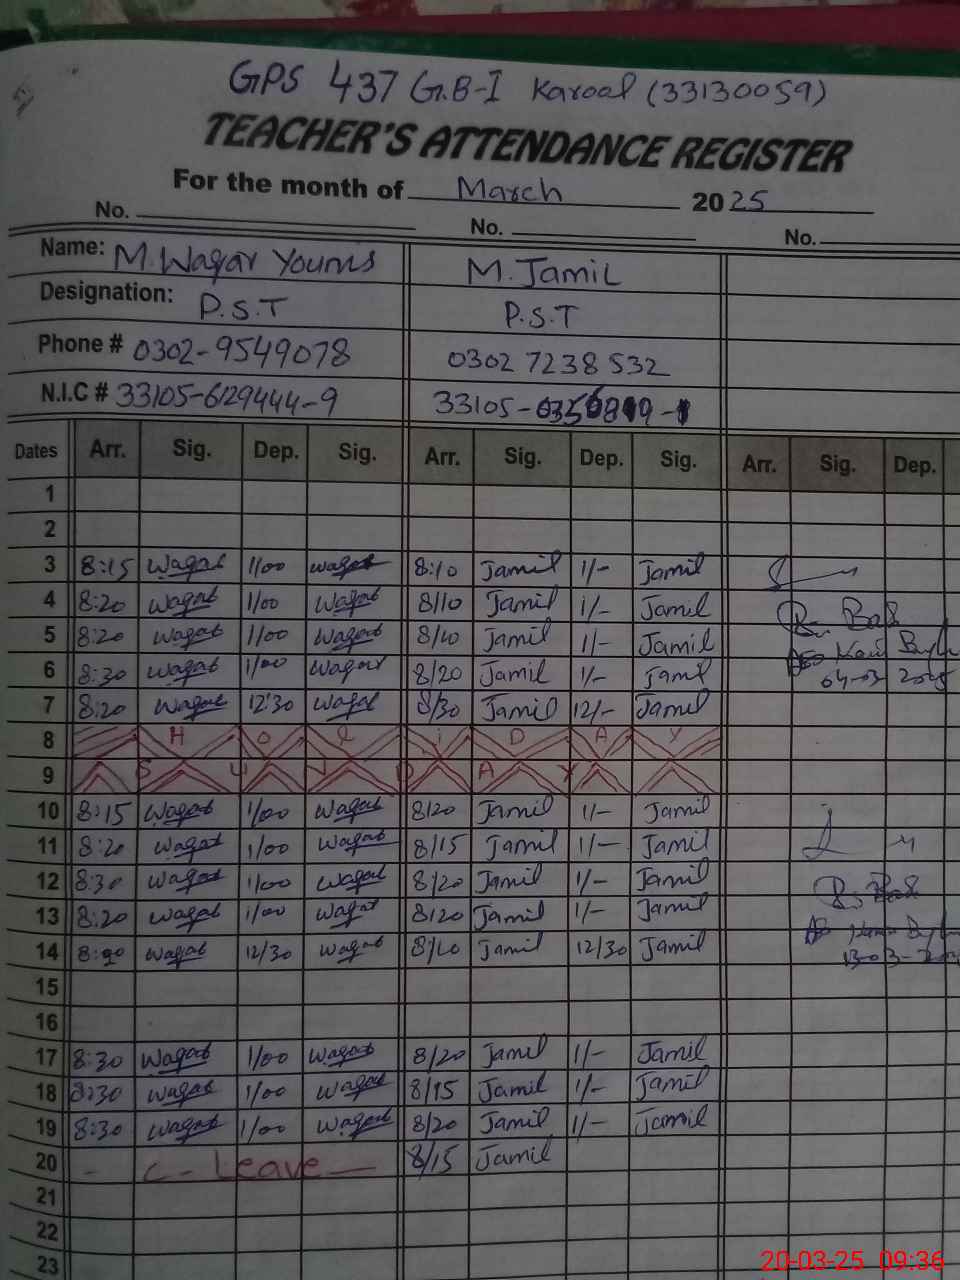 GPS 437 G.B-I Karoal (33130059)
TEACHER'S ATTENDANCE REGISTER
For the month of March 2025
No. No. No.
Name: M. Waqar Younis M. Jamil
Designation: P.S.T P.S.T
Phone # 0302-9549078 0302 7238532
N.I.C # 33105-6129444-9 33105-
Dates Arr. Sig. Dep. Sig. Arr. Sig. Dep. Sig. Arr. Sig. Dep.
1
2
3 8:15 Waqar 1/00 Waqar 8:10 Jamil 1/- Jamil
4 8:20 Waqar 1/00 Waqar 8/10 Jamil 1/- Jamil
5 8:20 Waqar 1/00 Waqar 8/10 Jamil 1/- Jamil
6 8:30 Waqar 1/00 Waqar 8/20 Jamil 1/- Jamil 04-03 2025
7 8:20 Waqar 12:30 Waqar 8/30 Jamil 12/- Jamil
8 H o l i D A Y
9 S U N D A Y
10 8:15 Waqar 1/00 Waqar 8/20 Jamil 1/- Jamil
11 8:20 Waqar 1/00 Waqar 8/15 Jamil 1/- Jamil
12 8:30 Waqar 1/00 Waqar 8/20 Jamil 1/- Jamil
13 8:20 Waqar 1/00 Waqar 8/20 Jamil 1/- Jamil
14 Waqar 12/30 Waqar 8/10 Jamil 12/30 Jamil
15
16
17 8:30 Waqar 1/00 Waqar 8/20 Jamil 1/- Jamil
18 8:30 Waqar 1/00 Waqar 8/15 Jamil 1/- Jamil
19 8:30 Waqar 1/00 Waqar 8/20 Jamil 1/- Jamil
20 - C - Leave - 8/15 Jamil
21
22
23
20-03-25 09:36